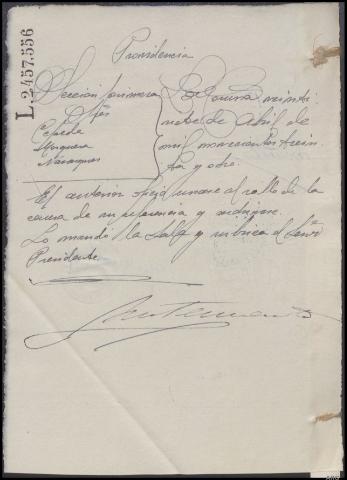 L.2457.556
Providencia
Sección primera
Sres
Cepeda
Mosquera
Naranjos
La Coruña veinti
siete de Abril de
mil novecientos trein
ta y ocho.
El anterior unase al rollo de la
causa de su referencia y
Lo mandó la Sala y rubrica el Señor
Presidente